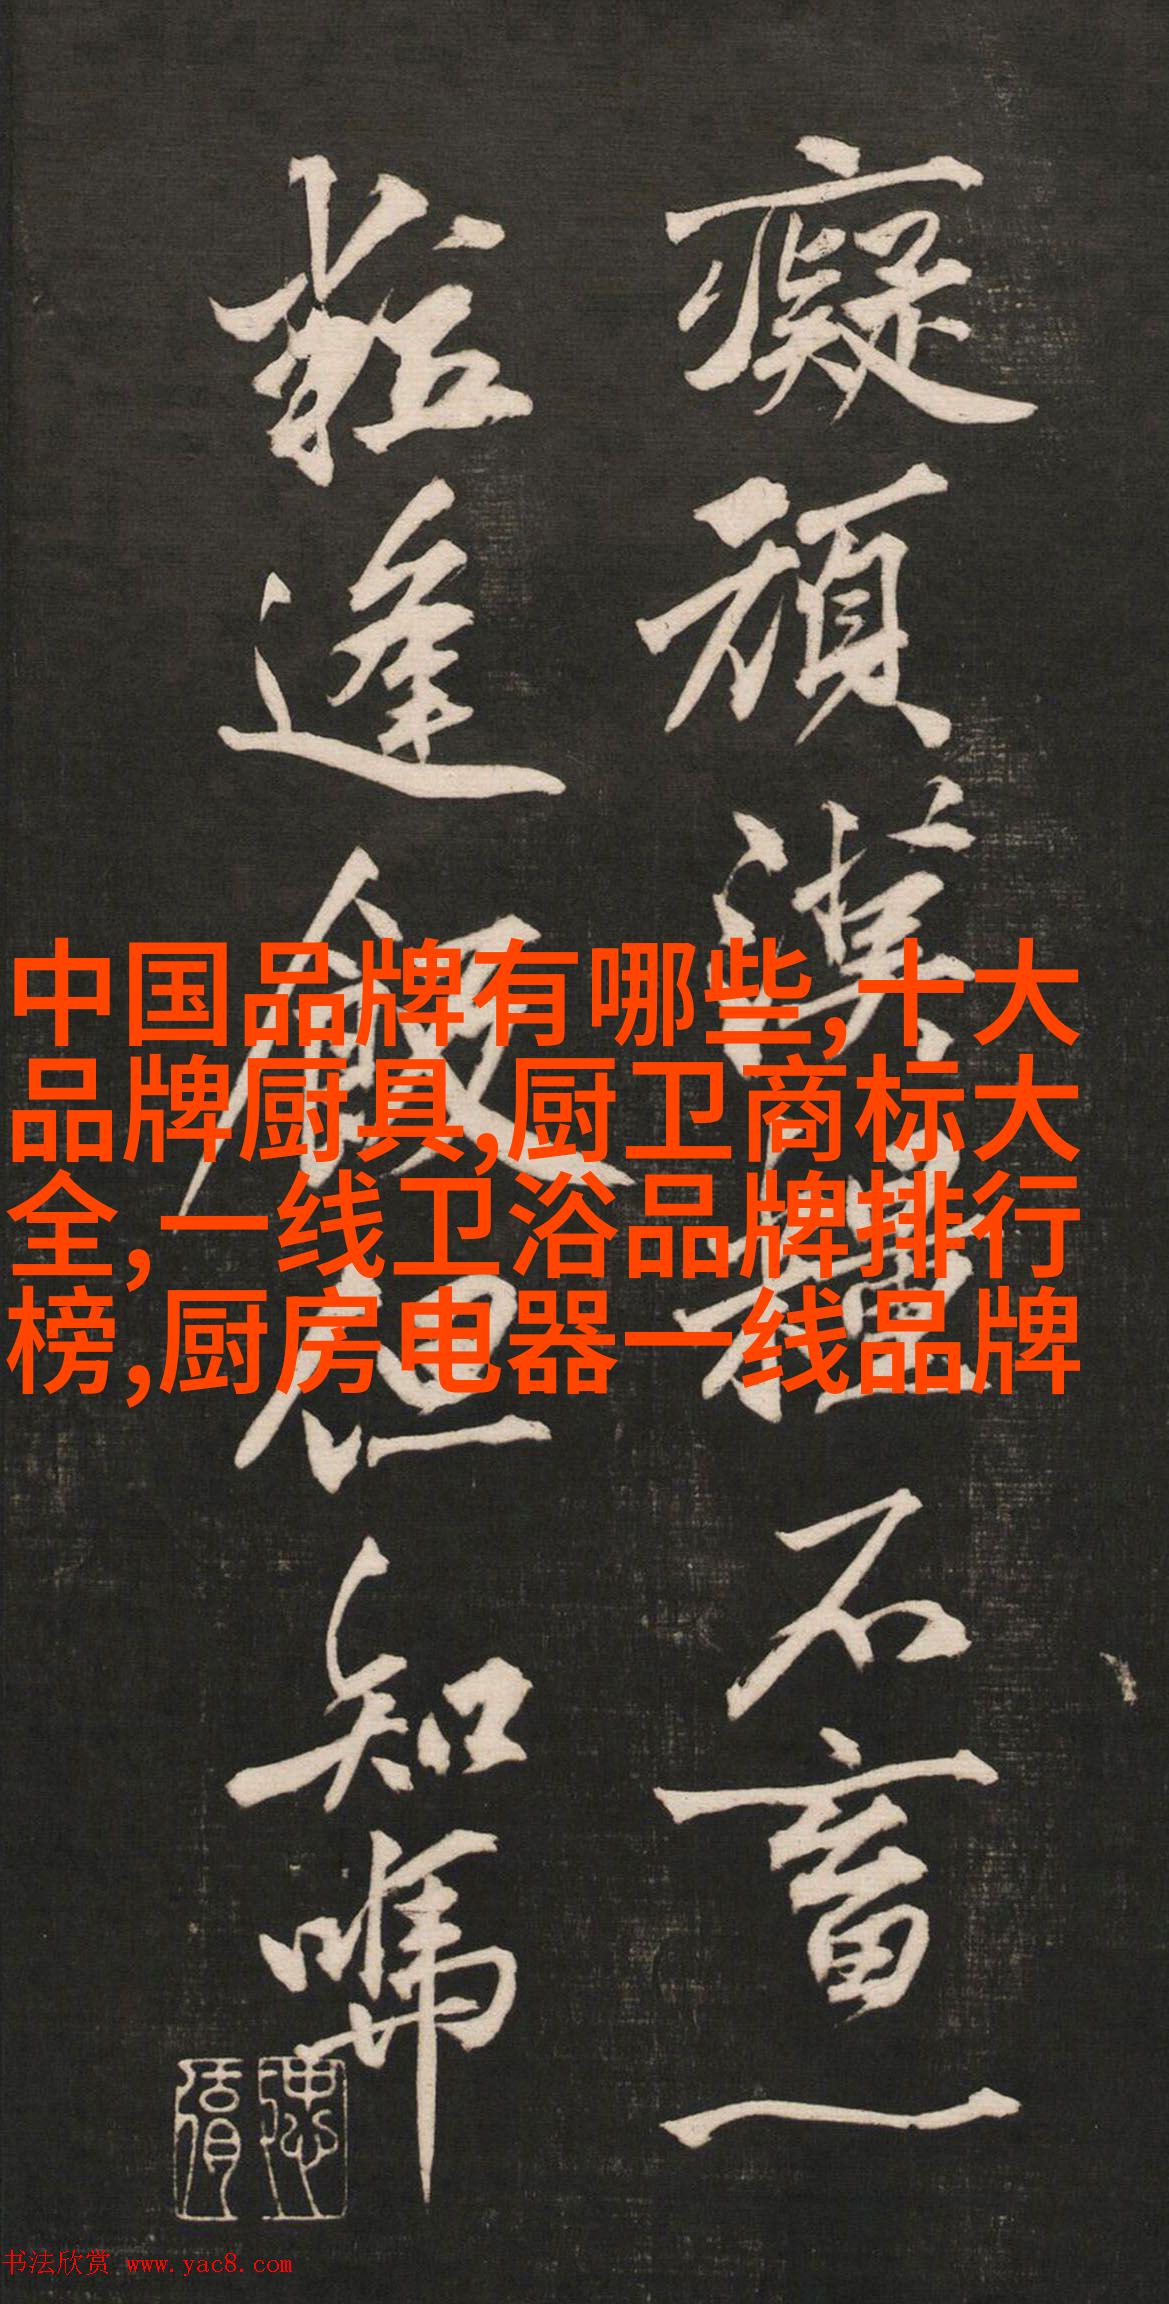 癡頑漢擔不畜一
鞋逢飯但知嚼
中国品牌有哪些,十大
品牌厨具,厨卫商标大
全,一线卫浴品牌排行
榜,厨房电器一线品牌
书法欣赏 www.yac8.com